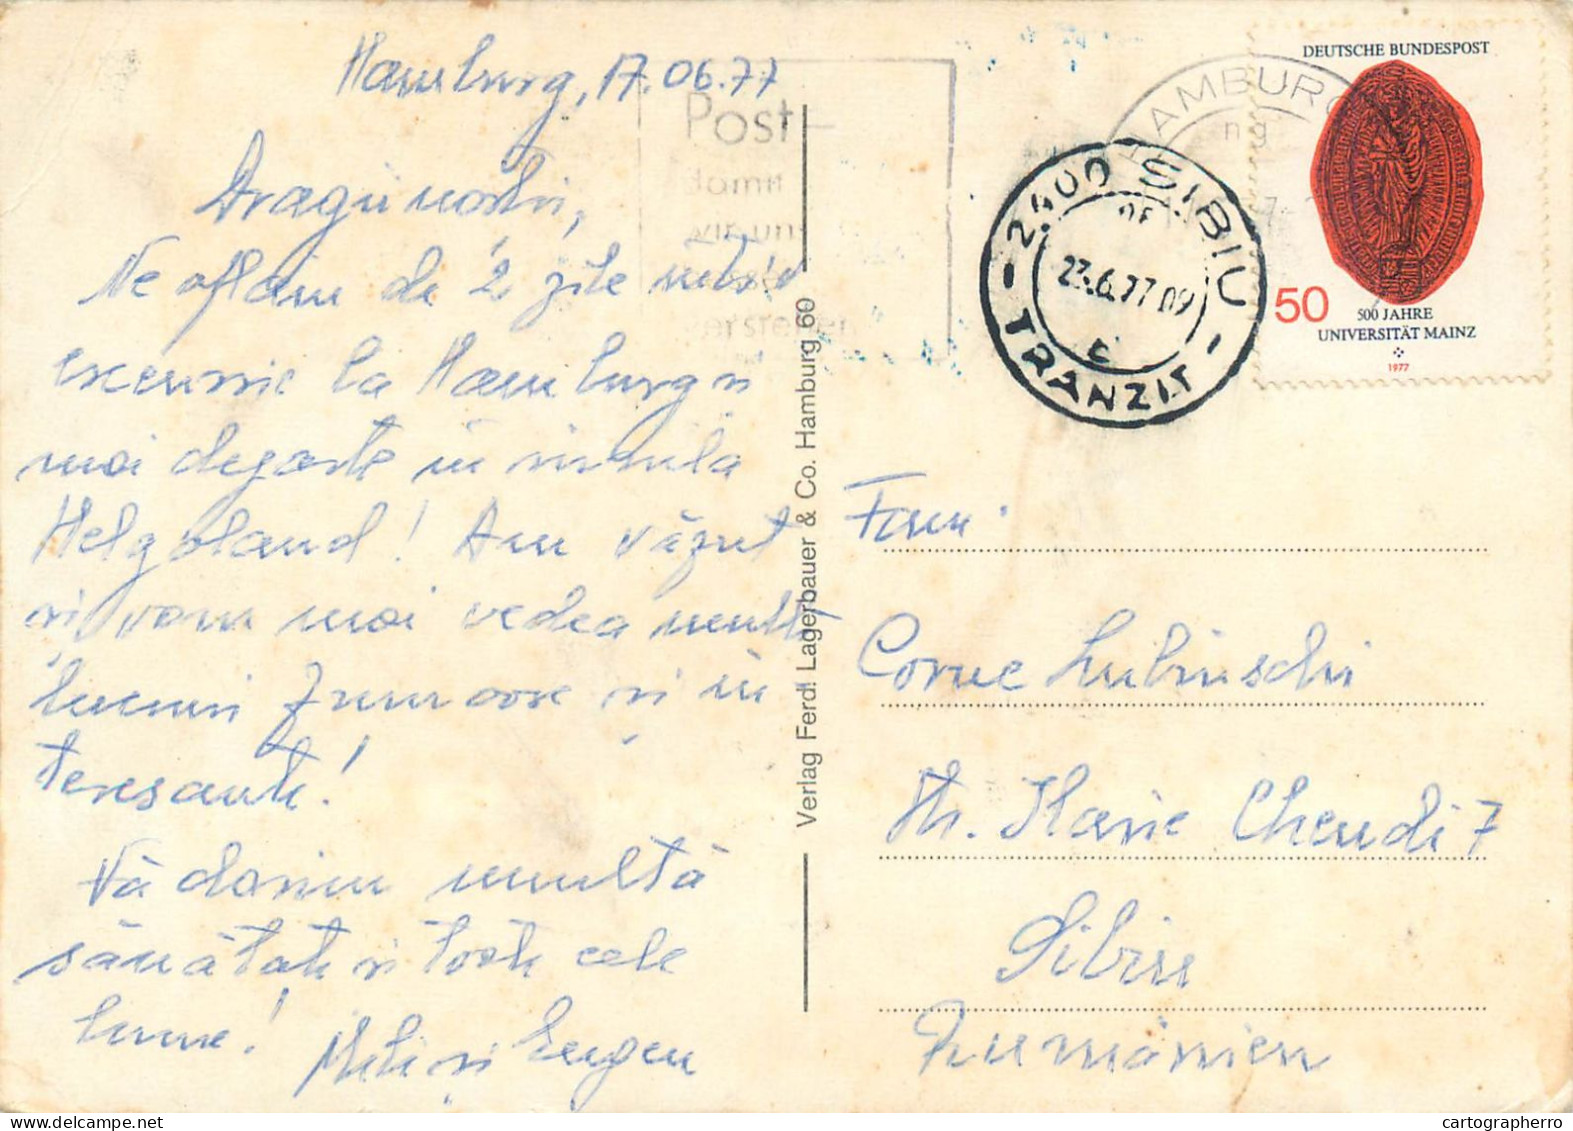 Hamburg, 17.06.77
Dragii noștri,
Ne aflăm de 2 zile într-o
excursie la Hamburg și
mai departe în insula
Helgoland! Am văzut
și vom mai vedea multe
lucruri frumoase și in
teresante!
Vă dorim multă
sănătate și toate cele
bune! și Eugen
Verlag Ferd. Lagerbauer & Co. Hamburg 60
Post-
damit
wir uns
verstehen
HAMBURG
ng
2400 SIBIU
23.6.77 09
c
TRANZIT
DEUTSCHE BUNDESPOST
50
500 JAHRE
UNIVERSITÄT MAINZ
1977
Fam.
Cornel Lubinschi
Str. Ilarie Chendi 7
Sibiu
Rumänien
cartographerro